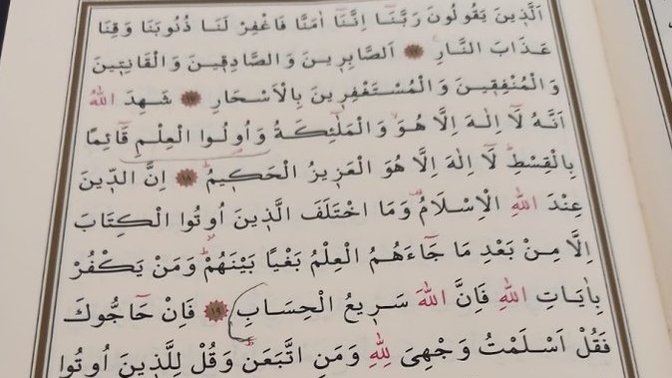 اَلَّذ۪ينَ يَقُولُونَ رَبَّنَٓا اِنَّنَٓا اٰمَنَّا فَاغْفِرْ لَنَا ذُنُوبَنَا وَقِنَا
عَذَابَ النَّارِۚ ﴿١٦﴾ اَلصَّابِر۪ينَ وَالصَّادِق۪ينَ وَالْقَانِت۪ينَ
وَالْمُنْفِق۪ينَ وَالْمُسْتَغْفِر۪ينَ بِالْاَسْحَارِ ﴿١٧﴾ شَهِدَ اللّٰهُ
اَنَّهُ لَٓا اِلٰهَ اِلَّا هُوَۙ وَالْمَلٰٓئِكَةُ وَاُو۬لُوا الْعِلْمِ قَٓائِمًا
بِالْقِسْطِۜ لَٓا اِلٰهَ اِلَّا هُوَ الْعَز۪يزُ الْحَك۪يمُۜ ﴿١٨﴾ اِنَّ الدّ۪ينَ
عِنْدَ اللّٰهِ الْاِسْلَامُ۠ وَمَا اخْتَلَفَ الَّذ۪ينَ اُو۫تُوا الْكِتَابَ
اِلَّا مِنْ بَعْدِ مَا جَٓاءَهُمُ الْعِلْمُ بَغْيًا بَيْنَهُمْۜ وَمَنْ يَكْفُرْ
بِاٰيَاتِ اللّٰهِ فَاِنَّ اللّٰهَ سَر۪يعُ الْحِسَابِ ﴿١٩﴾ فَاِنْ حَٓاجُّوكَ
فَقُلْ اَسْلَمْتُ وَجْهِيَ لِلّٰهِ وَمَنِ اتَّبَعَنِۜ وَقُلْ لِلَّذ۪ينَ اُو۫تُوا